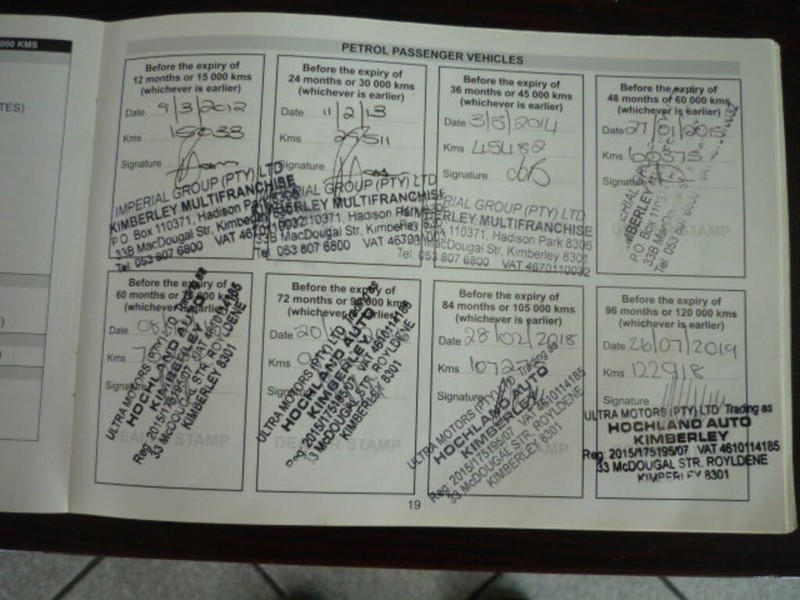 000 KMS
PETROL PASSENGER VEHICLES
Before the expiry of
12 months or 15 000 kms
(whichever is earlier)
Date 9/3/2012
Kms 15033
Signature
IMPERIAL GROUP (PTY) LTD
KIMBERLEY MULTIFRANCHISE
P O Box 110371, Hadison Park
33B MacDougal Str, Kimberley
Tel: 053 807 6800 VAT
Before the expiry of
24 months or 30 000 kms
(whichever is earlier)
Date 11/2/13
Kms
Signature
IMPERIAL GROUP (PTY) LTD
KIMBERLEY MULTIFRANCHISE
110371, Hadison Park
MacDougal Str, Kimberley
Tel: 053 807 6800 VAT
Before the expiry of
36 months or 45 000 kms
(whichever is earlier)
Date 3/3/2014
Kms 45482
Signature
GROUP (PTY) LTD
MULTIFRANCHISE
110371, Hadison Park 8306
MacDougal Str, Kimberley 8301
Tel: 053 807 6800 VAT 4670110032
Before the expiry of
48 months or 60 000 kms
(whichever is earlier)
Date 27/01/2015
Kms 60375
Signature
P O Box
33B MacDougal
Tel: 053 807 6800
STAMP
TES)
)
Before the expiry of
60 months or
(whichever is earlier)
Date
Kms
Signature
ULTRA MOTORS (PTY) LTD Trading as
HOCHLAND AUTO
KIMBERLEY
Reg: 2015/175195/07 VAT
33 McDOUGAL STR, ROYLDENE
KIMBERLEY 8301
STAMP
Before the expiry of
72 months or
(whichever is earlier)
Date
Kms
Signature
ULTRA MOTORS (PTY) LTD Trading as
HOCHLAND AUTO
KIMBERLEY
Reg: 2015/175195/07 VAT 4610114185
33 McDOUGAL STR, ROYLDENE
KIMBERLEY 8301
DEALER STAMP
Before the expiry of
84 months or 105 000 kms
(whichever is earlier)
Date 28/02/2018
Kms
Signature
ULTRA MOTORS (PTY) LTD Trading as
HOCHLAND AUTO
KIMBERLEY
Reg: 2015/175195/07 VAT 4610114185
33 McDOUGAL STR, ROYLDENE
KIMBERLEY 8301
Before the expiry of
96 months or 120 000 kms
(whichever is earlier)
Date 26/07/2019
Kms 122918
Signature
ULTRA MOTORS (PTY) LTD Trading as
HOCHLAND AUTO
KIMBERLEY
Reg: 2015/175195/07 VAT 4610114185
33 McDOUGAL STR, ROYLDENE
KIMBERLEY 8301
19